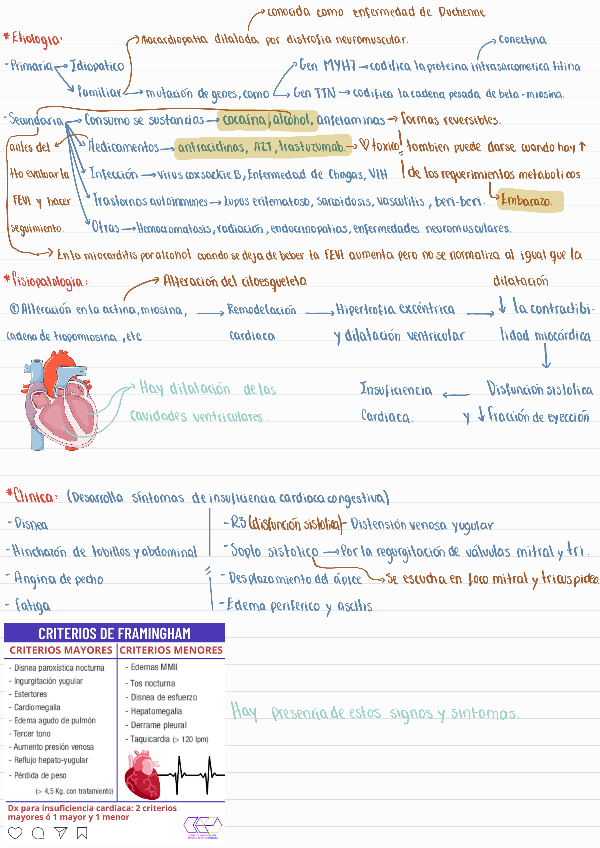 conocida como enfermedad de Duchenne
*Etiología: Miocardiopatia dilatada por distrofia neuromuscular. conectina
-Primaria Idiopatico Gen MYH7 codifica la proteina intrasarcomerica titina
Familiar mutación de genes, como Gen TTN codifica la cadena pesada de beta-miosina.
-Secundaria Consumo se sustancias cocaína, alcohol, anfetaminas formas reversibles.
antes del Medicamentos antraciclinas, AZT, trastuzumab. toxico tambien puede darse cuando hay ↑
tto evaluar la Infección Virus coxsackie B, Enfermedad de Chagas, VIH de los requerimientos metabolicos
FEVI y hacer Trastornos autoinmunes Lupus eritematoso, sarcoidosis, vasculitis, beri-beri. Embarazo.
seguimiento. Otras Hemocromatosis, radiación, endocrinopatias, enfermedades neuromusculares.
En la miocarditis por alcohol cuando se deja de beber la FEVI aumenta pero no se normaliza al igual que la
dilatación
*Fisiopatologia: Alteración del citoesqueleto
① Alteración en la actina, miosina, Remodelación Hipertrofia excéntrica ↓ la contractibi-
cadena de tropomiosina, etc cardiaca y dilatación ventricular lidad miocárdica
Hay dilatación de las Insuficiencia Disfunción sistolica
cavidades ventriculares. Cardiaca. y ↓ Fracción de eyección
*Clinica: (Desarrolla síntomas de insuficiencia cardiaca congestiva)
-Disnea -R3 (disfunción sistolica) - Distensión venosa yugular
-Hinchazón de tobillos y abdominal -Soplo sistolico Por la regurgitación de válvulas mitral y tri.
-Angina de pecho -Desplazamiento del ápice Se escucha en foco mitral y tricuspideo
-Fatiga -Edema periferico y ascitis
CRITERIOS DE FRAMINGHAM
CRITERIOS MAYORES CRITERIOS MENORES
- Disnea paroxística nocturna
- Ingurgitación yugular
- Estertores
- Cardiomegalia
- Edema agudo de pulmón
- Tercer tono
- Aumento presión venosa
- Reflujo hepato-yugular
- Pérdida de peso
(> 4,5 Kg. con tratamiento)
- Edemas MMII
- Tos nocturna
- Disnea de esfuerzo
- Hepatomegalia
- Derrame pleural
- Taquicardia (> 120 lpm)
Hay presencia de estos signos y síntomas.
Dx para insuficiencia cardíaca: 2 criterios
mayores ó 1 mayor y 1 menor